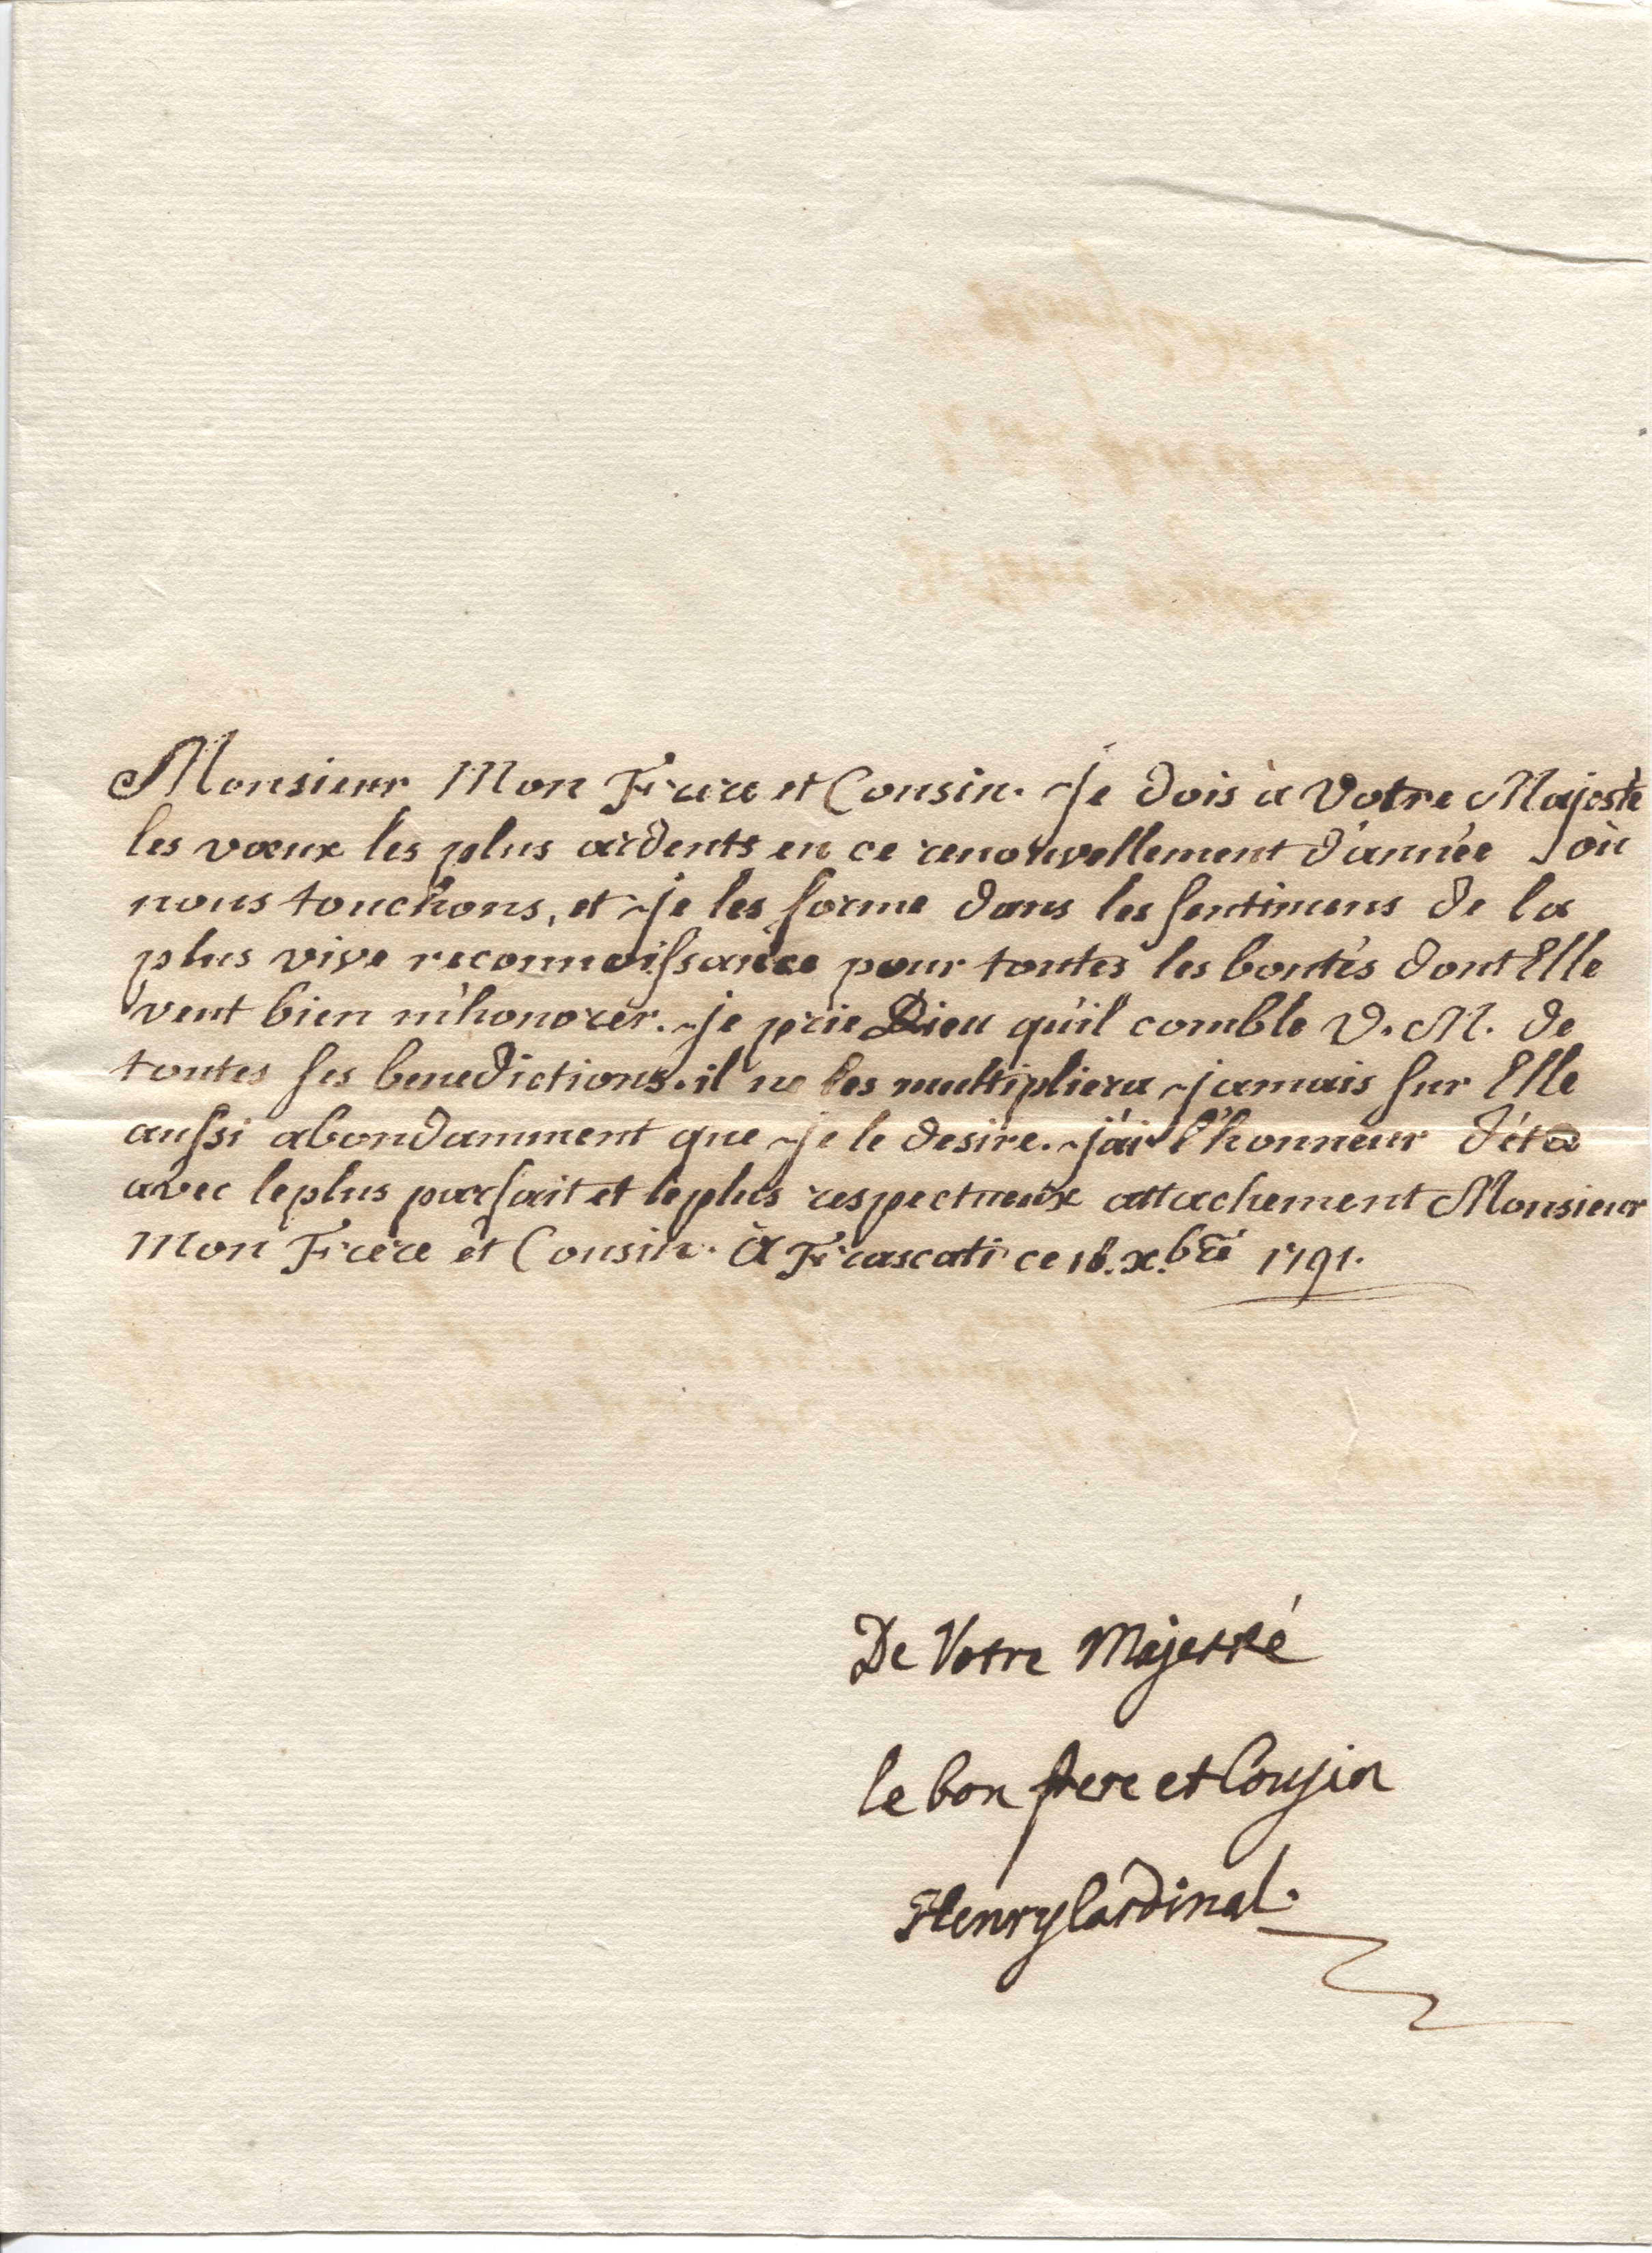 Monsieur Mon Frere et Cousin. Je dois à Votre Majesté
les vœux les plus ardents en ce renouvellement d'année où
nous touchons, et je les forme dans les sentimens de la
plus vive reconnoissance pour toutes les bontés dont Elle
veut bien m'honorer. je prie Dieu qu'il comble V. M. de
toutes ses benedictions. il ne les multipliera jamais sur Elle
aussi abondamment que je le desire. j'ai l'honneur d'étre
avec le plus parfait et le plus respectueux attachement Monsieur
Mon Frere et Cousin. à Frascati ce 18. xbre 1791.
De Votre Majesté
le bon frere et Cousin
Henry Cardinal.